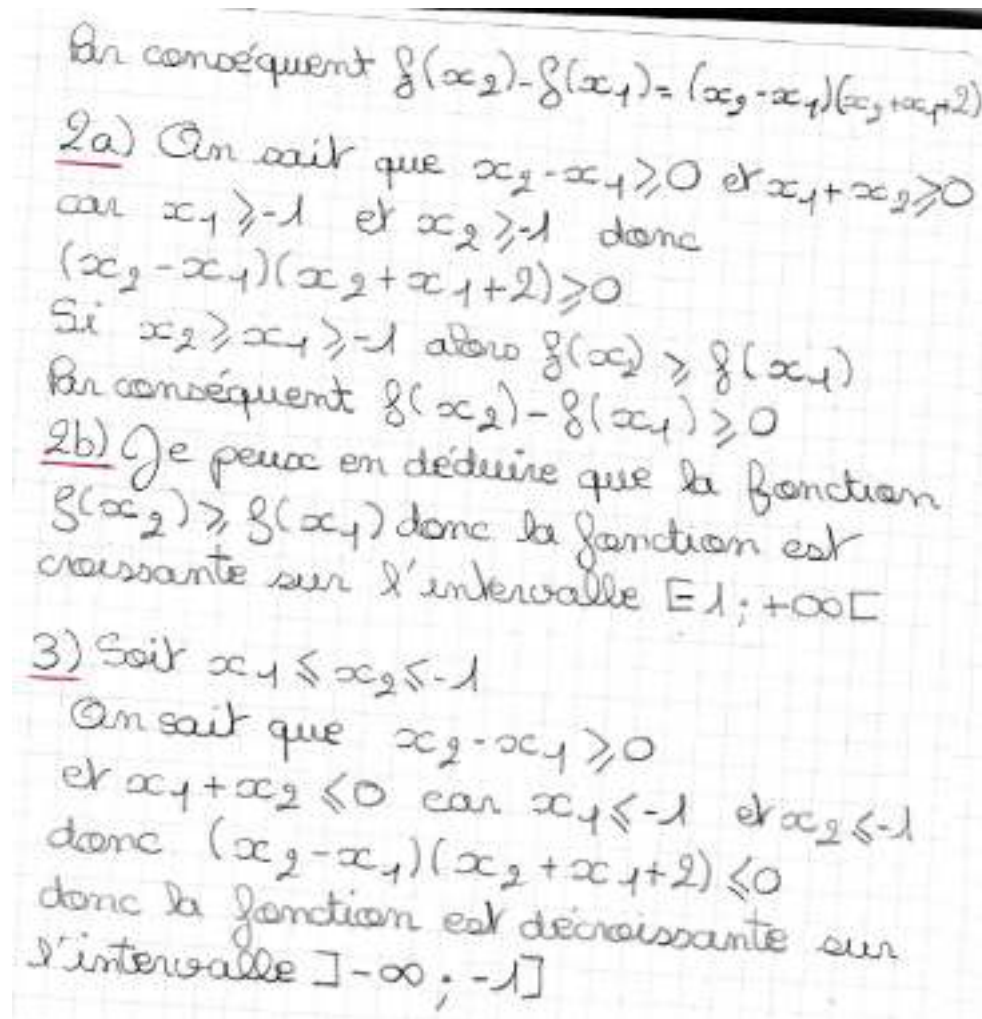 Par conséquent f(x₂)-f(x₁) = (x₂-x₁)(x₂+x₁+2)
2a) On sait que x₂-x₁⩾0 et x₁+x₂⩾0
car x₁⩾-1 et x₂⩾-1 donc
(x₂-x₁)(x₂+x₁+2)⩾0
Si x₂⩾x₁⩾-1 alors f(x₂) ⩾ f(x₁)
Par conséquent f(x₂)-f(x₁)⩾0
2b) Je peux en déduire que la fonction
f(x₂)⩾f(x₁) donc la fonction est
croissante sur l'intervalle [-1; +∞[
3) Soit x₁⩽x₂⩽-1
On sait que x₂-x₁⩾0
et x₁+x₂⩽0 car x₁⩽-1 et x₂⩽-1
donc (x₂-x₁)(x₂+x₁+2)⩽0
donc la fonction est décroissante sur
l'intervalle ]-∞;-1]